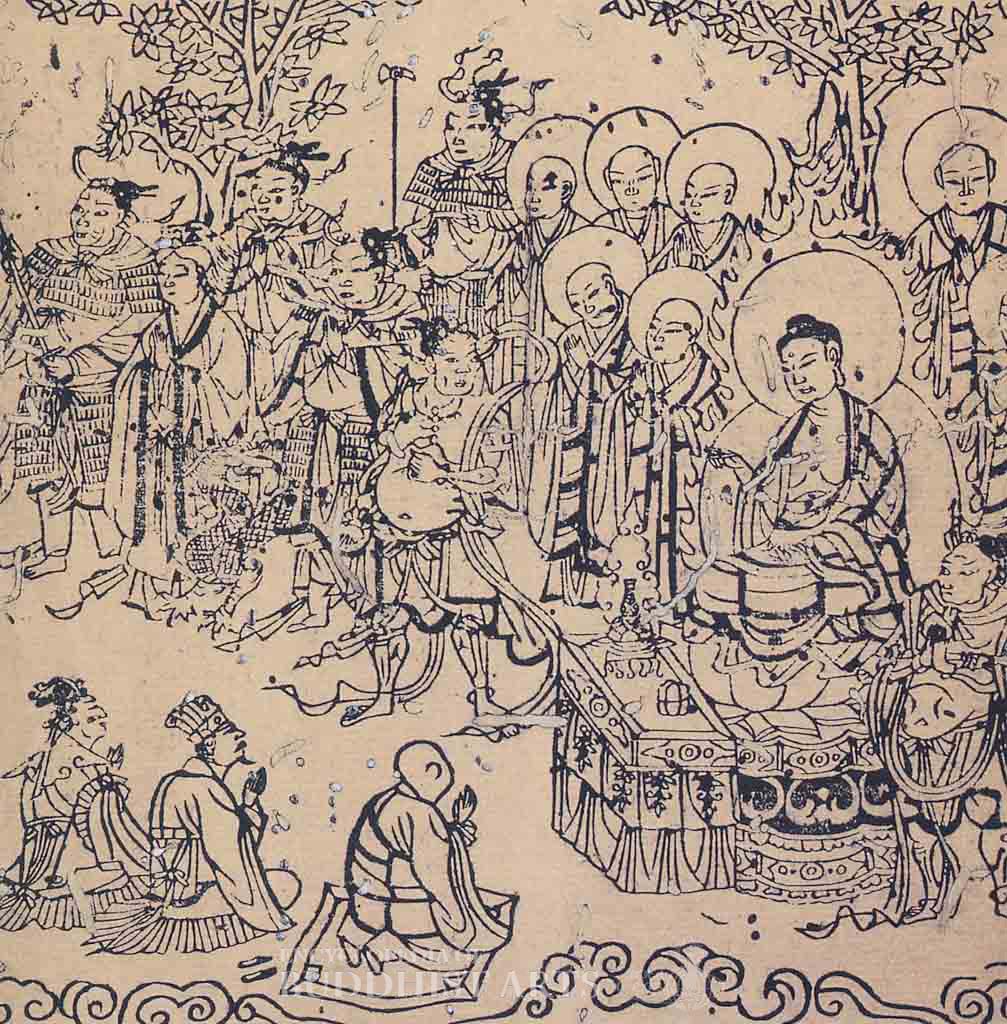 ENCYCLOPAEDIA OF
BUDDHIST ARTS